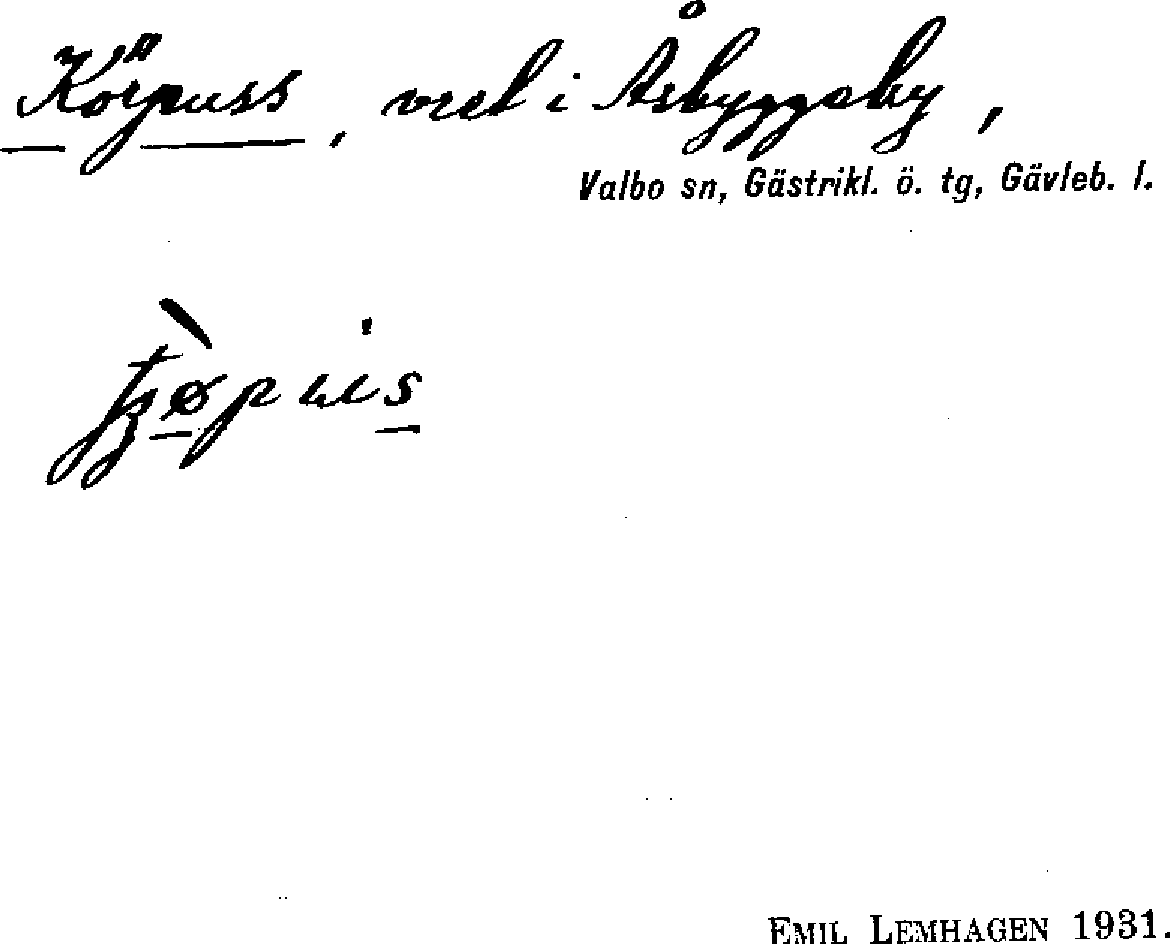 Körpuss, vret i Åsbyggeby,
Valbo sn, Gästrikl. ö. tg, Gävleb. l.
EMIL LEMHAGEN 1931.